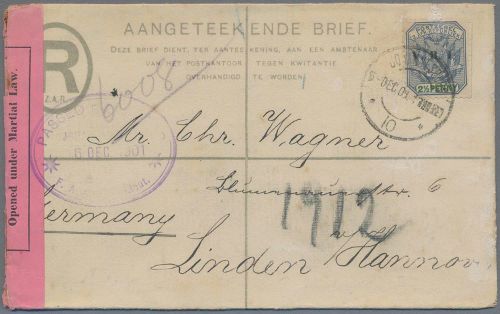 AANGETEEKENDE BRIEF.
DEZE BRIEF DIENT, TER AANTEEKENING, AAN EEN AMBTENAAR
VAN HET POSTKANTOOR TEGEN KWITANTIE
OVERHANDIGD TE WORDEN
R
Z.A.R.
6008
2½ PENNY
DEC. 01
10
PASSED
6 DEC 1901
Opened under Martial Law.
Mr. Chr. Wagner
Blumenauerstr. 6
Germany
1912
Linden Hannov